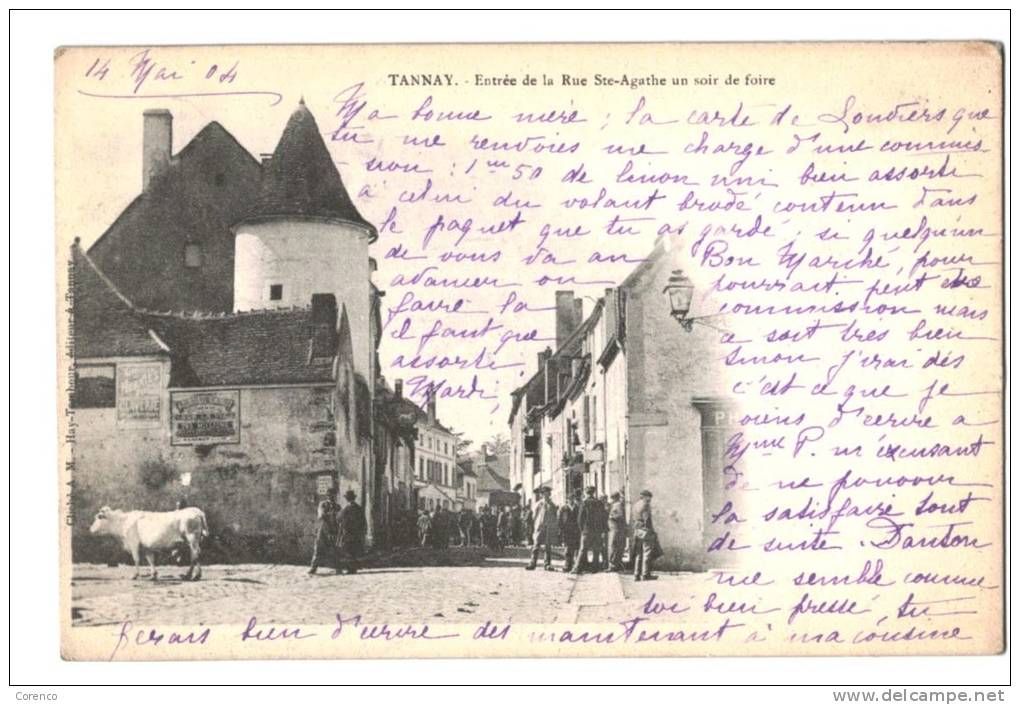 14 Mai 04
TANNAY. - Entrée de la Rue Ste-Agathe un soir de foire
Ma bonne mère ; la carte de Londiers que
tu me renvoies me charge d'une commis-
sion : 1m50 de linon uni bien assorti
à celui du volant brodé contenu dans
le paquet que tu as gardé ; si quelqu'un
de vous va au Bon Marché, pour
on pourrait peut être
faire la commission mais
il faut que ce soit très bien
assorti. Sinon j'irai dès
Mardi, c'est ce que je
viens d'écrire à
Mme P. m'excusant
de ne pouvoir
la satisfaire tout
de suite. Danton
me semble comme
toi bien pressé, tu
ferais bien d'écrire dès maintenant à ma cousine
Cliché A. M. - Hay-Trambour, éditeur à Tannay
PH
Corenco
http://www.delcampe.net